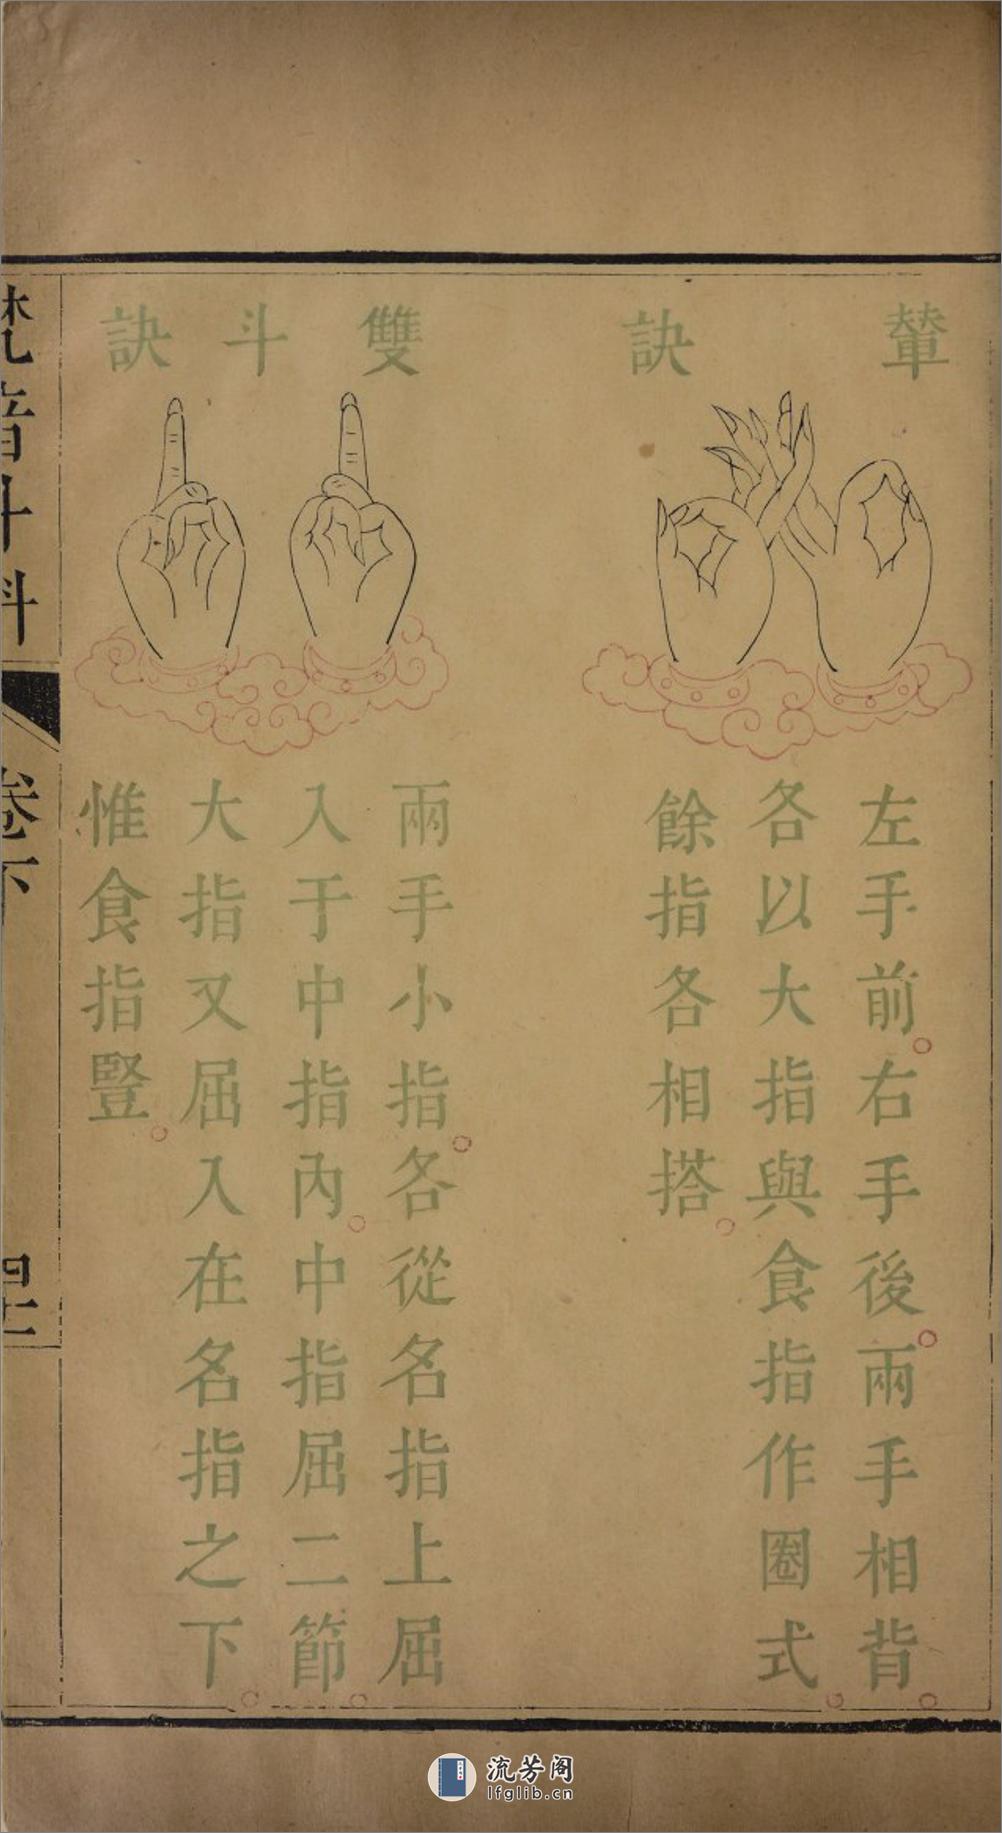 輦訣
左手前。右手後。兩手相背。
各以大指與食指作圈式。
餘指各相搭。
雙斗訣
兩手小指。各從名指上屈
入于中指內。中指屈二節。
大指又屈入在名指之下。
惟食指豎。
梵音斗科
卷下
流芳阁
lfglib.cn